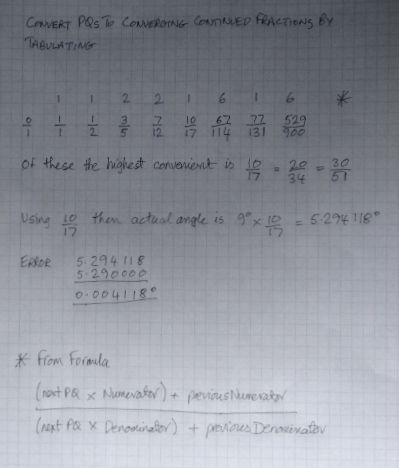 CONVERT PQs TO CONVERGING CONTINUED FRACTIONS BY
TABULATING
1 1 2 2 1 6 1 6 *
0/1 1/1 1/2 3/5 7/12 10/17 67/114 77/131 529/900
Of these the highest convenient is 10/17 = 20/34 = 30/51
Using 10/17 then actual angle is 9° × 10/17 = 5.294118°
ERROR 5.294118
5.290000
0.004118°
* From Formula
(next PQ × Numerator) + previous Numerator
(next PQ × Denominator) + previous Denominator